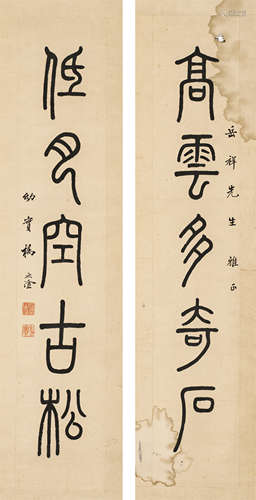 高雲多奇石
岳祥先生雅正
低月空古松
幼